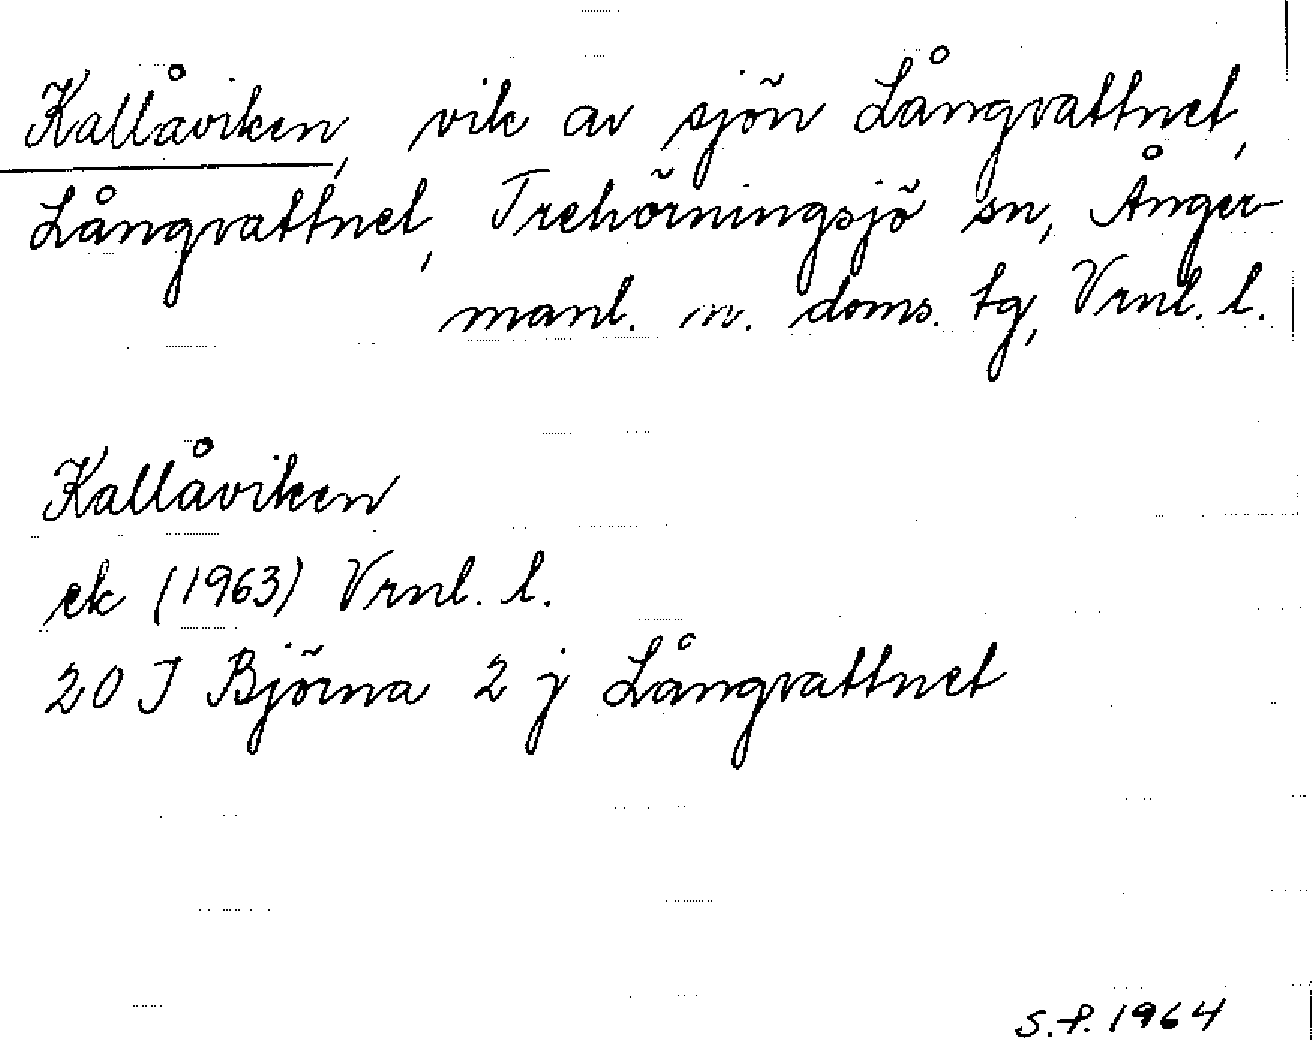 Kallåviken, vik av sjön Långvattnet,
Långvattnet, Trehörningsjö sn, Ånger-
manl. n. doms. tg, Vrnl. l.
Kallåviken
ek (1963) Vrnl. l.
20 J Björna 2 j Långvattnet
S.P. 1964